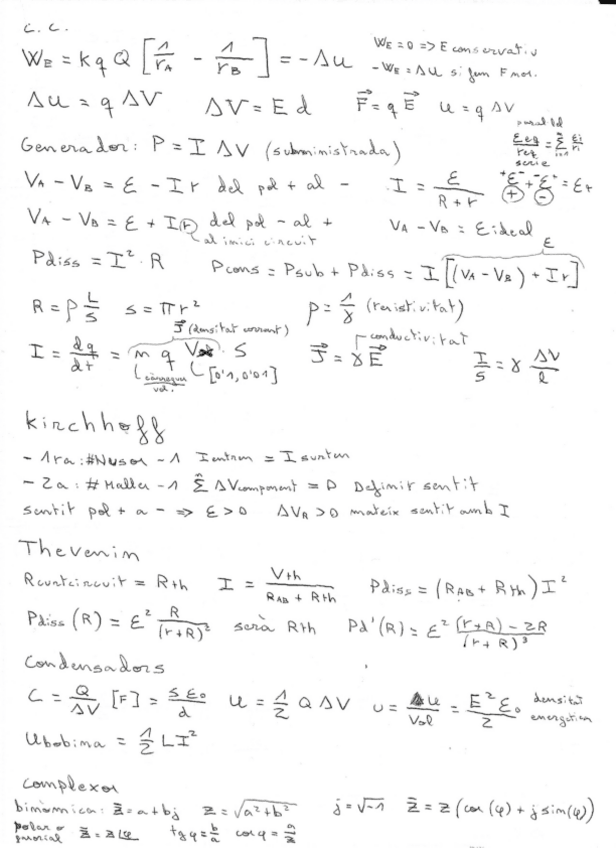 C.C.
W_E = k q Q [1/r_A - 1/r_B] = -Δu
W_E = 0 => E conservativ
-W_E = Δu si fem F mor.
Δu = q ΔV ΔV = E d F⃗ = q E⃗ u = q ΔV
Generador: P = I ΔV (subministrada)
paral·lel
εeq/req = Σ εi/ri
serie
V_A - V_B = ε - I r del pol + al - I = ε/(R + r) +ε- -ε+ = ε_T
V_A - V_B = ε + I r del pol - al + V_A - V_B = ε ideal
al inici circuit
Pdiss = I² · R Pcons = Psub + Pdiss = I [(V_A - V_B) + I r]
ε
R = ρ L/S S = π r² ρ = 1/γ (resistivitat)
J⃗ (densitat corrent)
I = dq/dt = n q V · S J⃗ = γ E⃗ I/S = γ ΔV/l
conductivitat
càrregues/vol. [0'1, 0'01]
Kirchhoff
- 1ra: #Nusos - 1 I entren = I surten
- 2a: # Malles - 1 Σ ΔVcomponent = 0 Definir sentit
sentit pol + a - => ε > 0 ΔV_R > 0 mateix sentit amb I
Thevenin
Rcurtcircuit = Rth I = Vth/(R_AB + Rth) Pdiss = (R_AB + Rth) I²
Pdiss (R) = ε² R/(r+R)² serà Rth Pd'(R) = ε² ((r+R) - 2R)/(r+R)³
Condensadors
C = Q/ΔV [F] = S ε₀/d U = 1/2 Q ΔV u = Δu/Vol = E² ε₀/2 densitat energetica
Ubobina = 1/2 L I²
Complexos
binòmica: z̄ = a + bj z = √(a² + b²) j = √-1 z̄ = z (cos(φ) + j sin(φ))
polar o fasorial z̄ = z∠φ tg φ = b/a cos φ = a/z